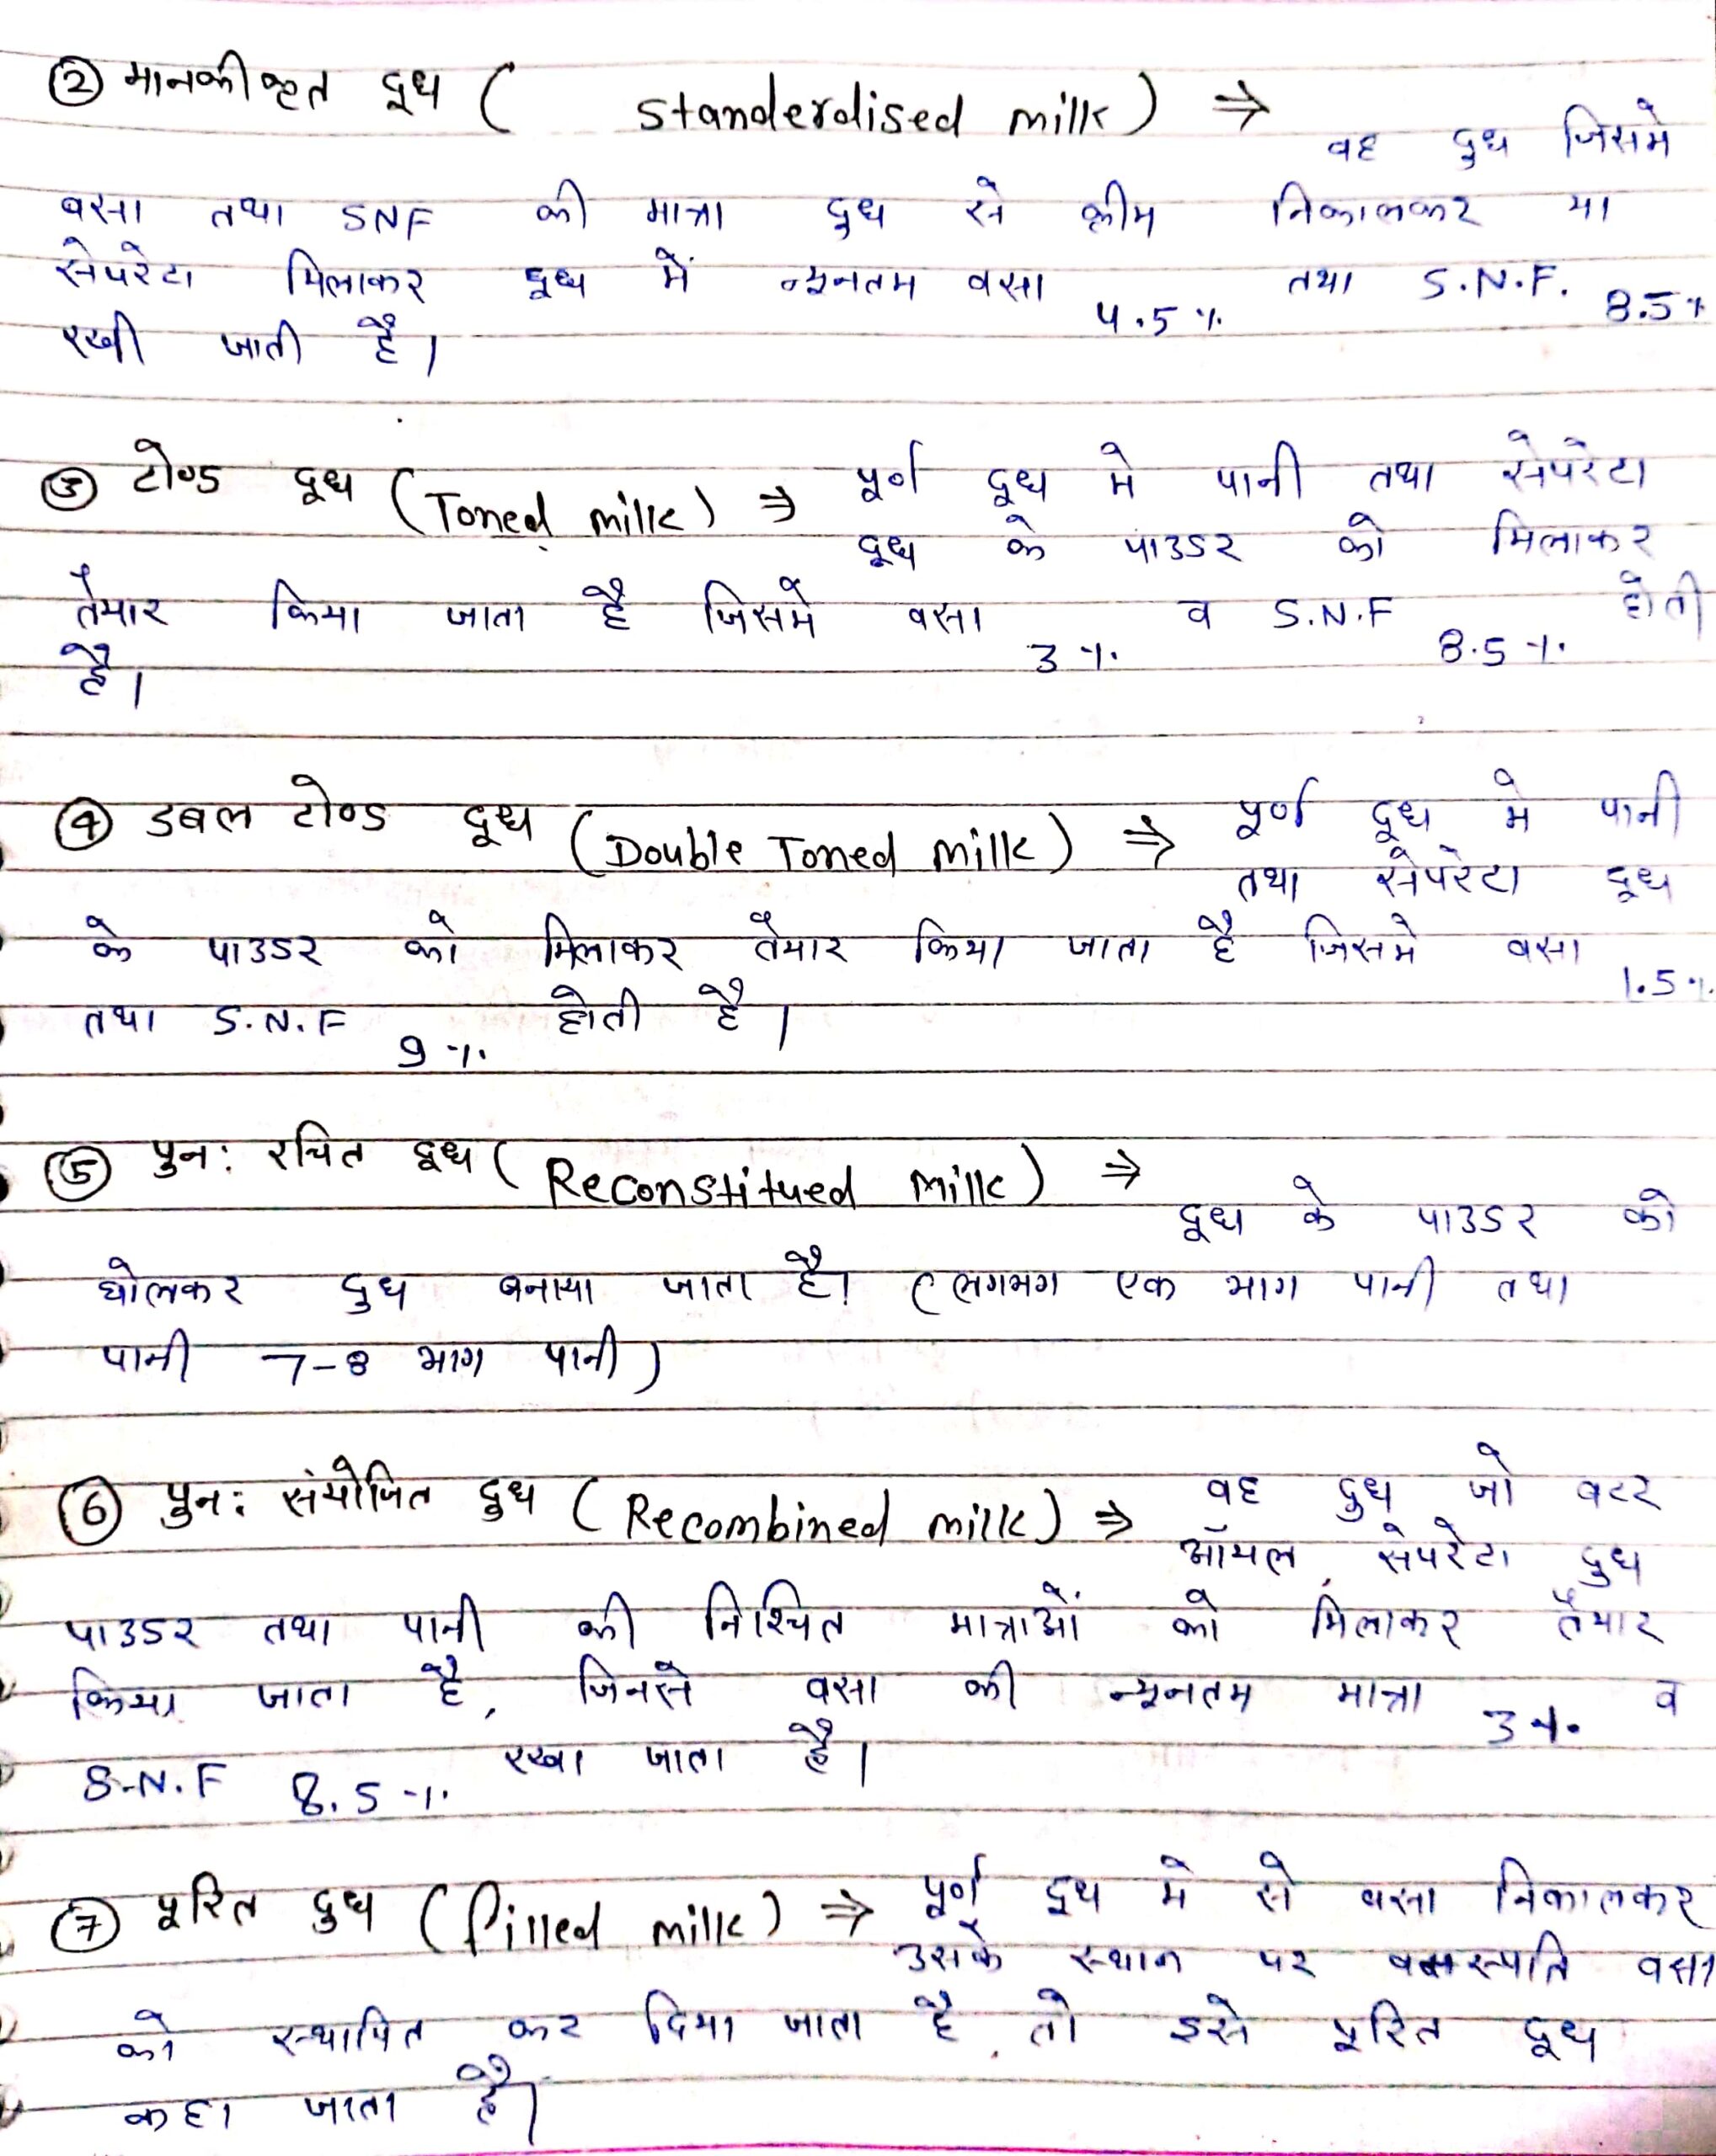 ② मानकीकृत दूध ( Standerdised milk) ⇒
वह दुध जिसमे
वसा तथा SNF की मात्रा दुध से क्रीम निकालकर या
सेपरेटा मिलाकर दूध में न्यूनतम वसा 4.5% तथा S.N.F. 8.5%
रखी जाती है।
③ टोण्ड दूध (Toned milk) ⇒ पूर्ण दूध मे पानी तथा सेपरेटा
दूध के पाउडर को मिलाकर
तैयार किया जाता है जिसमें वसा 3% व S.N.F 8.5% होती
है।
④ डबल टोण्ड दूध (Double Toned milk) ⇒ पूर्ण दूध मे पानी
तथा सेपरेटा दूध
के पाउडर को मिलाकर तैयार किया जाता है जिसमे वसा 1.5%
तथा S.N.F 9% होती है।
⑤ पुन: रचित दूध (Reconstitued milk) ⇒
दूध के पाउडर को
घोलकर दुध बनाया जाता है। (लगभग एक भाग पानी तथा
पानी 7-8 भाग पानी)
⑥ पुन: संयोजित दुध (Recombined milk) ⇒ वह दुध जो बटर
ऑयल, सेपरेटा दुध
पाउडर तथा पानी की निश्चित मात्राओं को मिलाकर तैयार
किया जाता है, जिनसे वसा की न्यूनतम मात्रा 3% व
S.N.F 8.5% रखा जाता है।
⑦ पूरित दुध (filled milk) ⇒ पूर्ण दूध मे से वसा निकालकर
उसके स्थान पर वनस्पति वसा
को स्थापित कर दिया जाता है, तो इसे पूरित दूध
कहा जाता है।